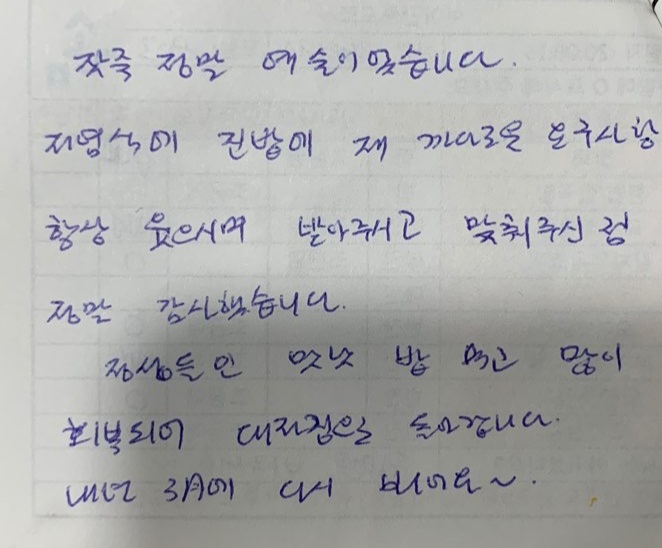 잣죽 정말 예술이였습니다.
저염식에 진밥에 제 까다로운 요구사항
항상 웃으시며 받아주시고 맞춰주신 점
정말 감사했습니다.
정성들인 맛난 밥 먹고 많이
회복되어 대자집으로 돌아갑니다.
내년 3月에 다시 봬어요~.